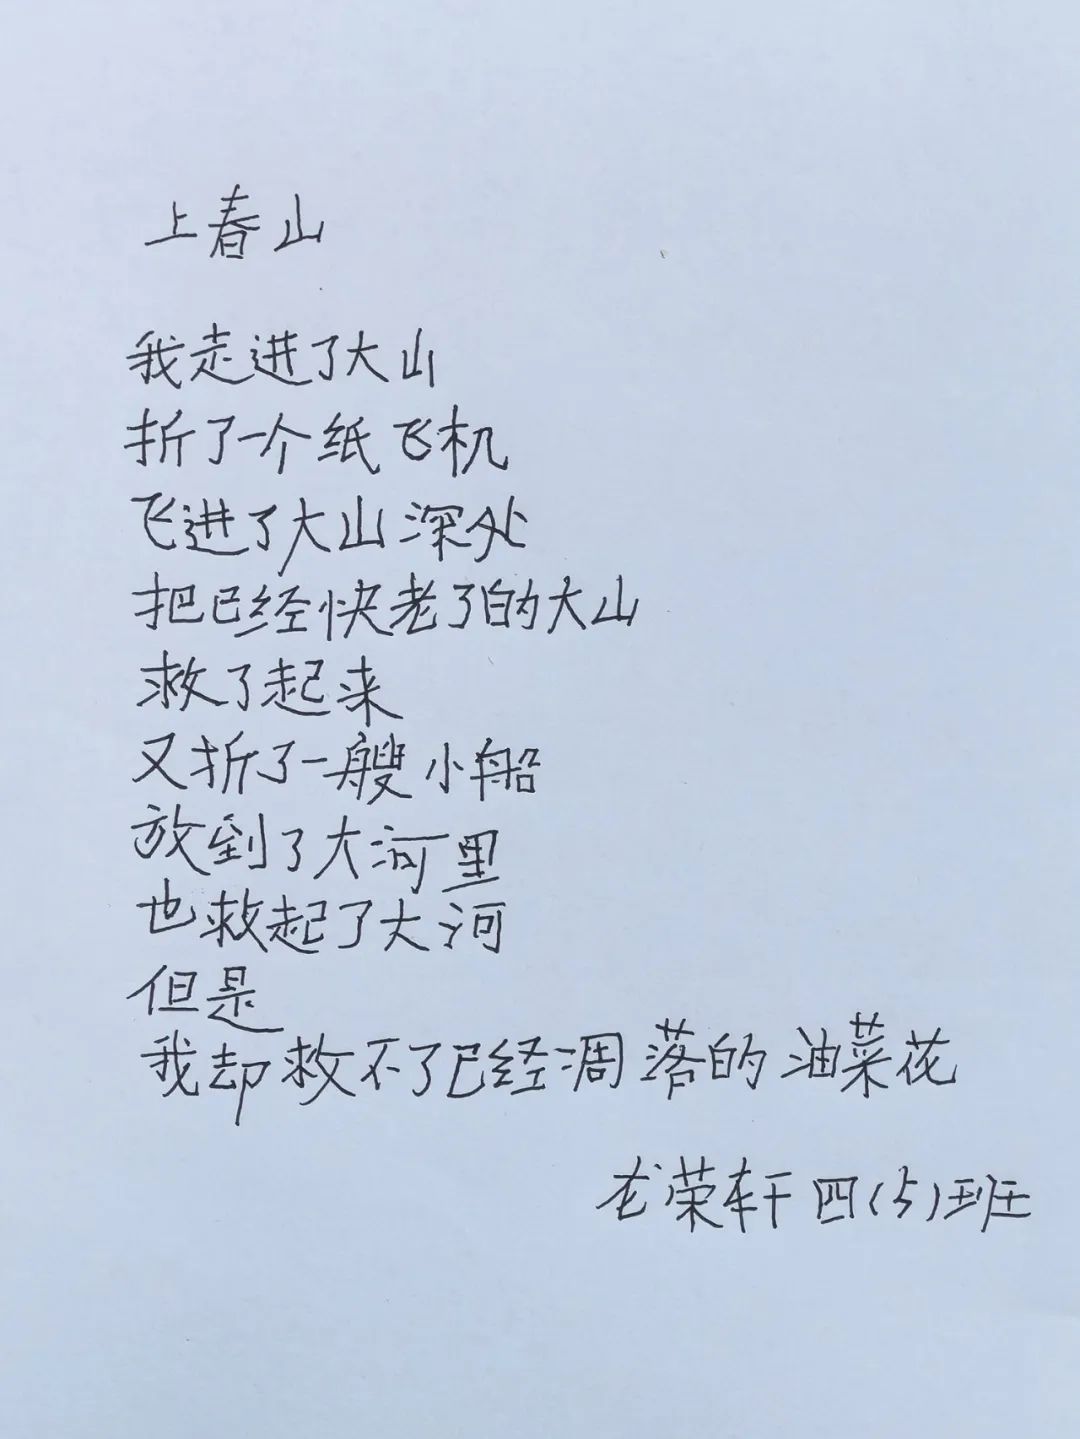 上春山
我走进了大山
折了一个纸飞机
飞进了大山深处
把已经快老了的大山
救了起来
又折了一艘小船
放到了大河里
也救起了大河
但是
我却救不了已经凋落的油菜花
龙荣轩四(5)班